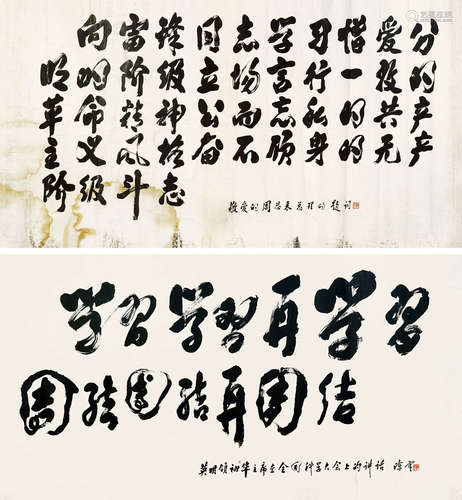 向雷锋同志学习憎爱分
明的阶级立场言行一致的
革命精神公而忘私的共产
主义风格奋不顾身的无产
阶级斗志
敬爱的周恩来总理的题词
学习学习再学习
团结团结再团结
英明领袖华主席在全国科学大会上的讲话